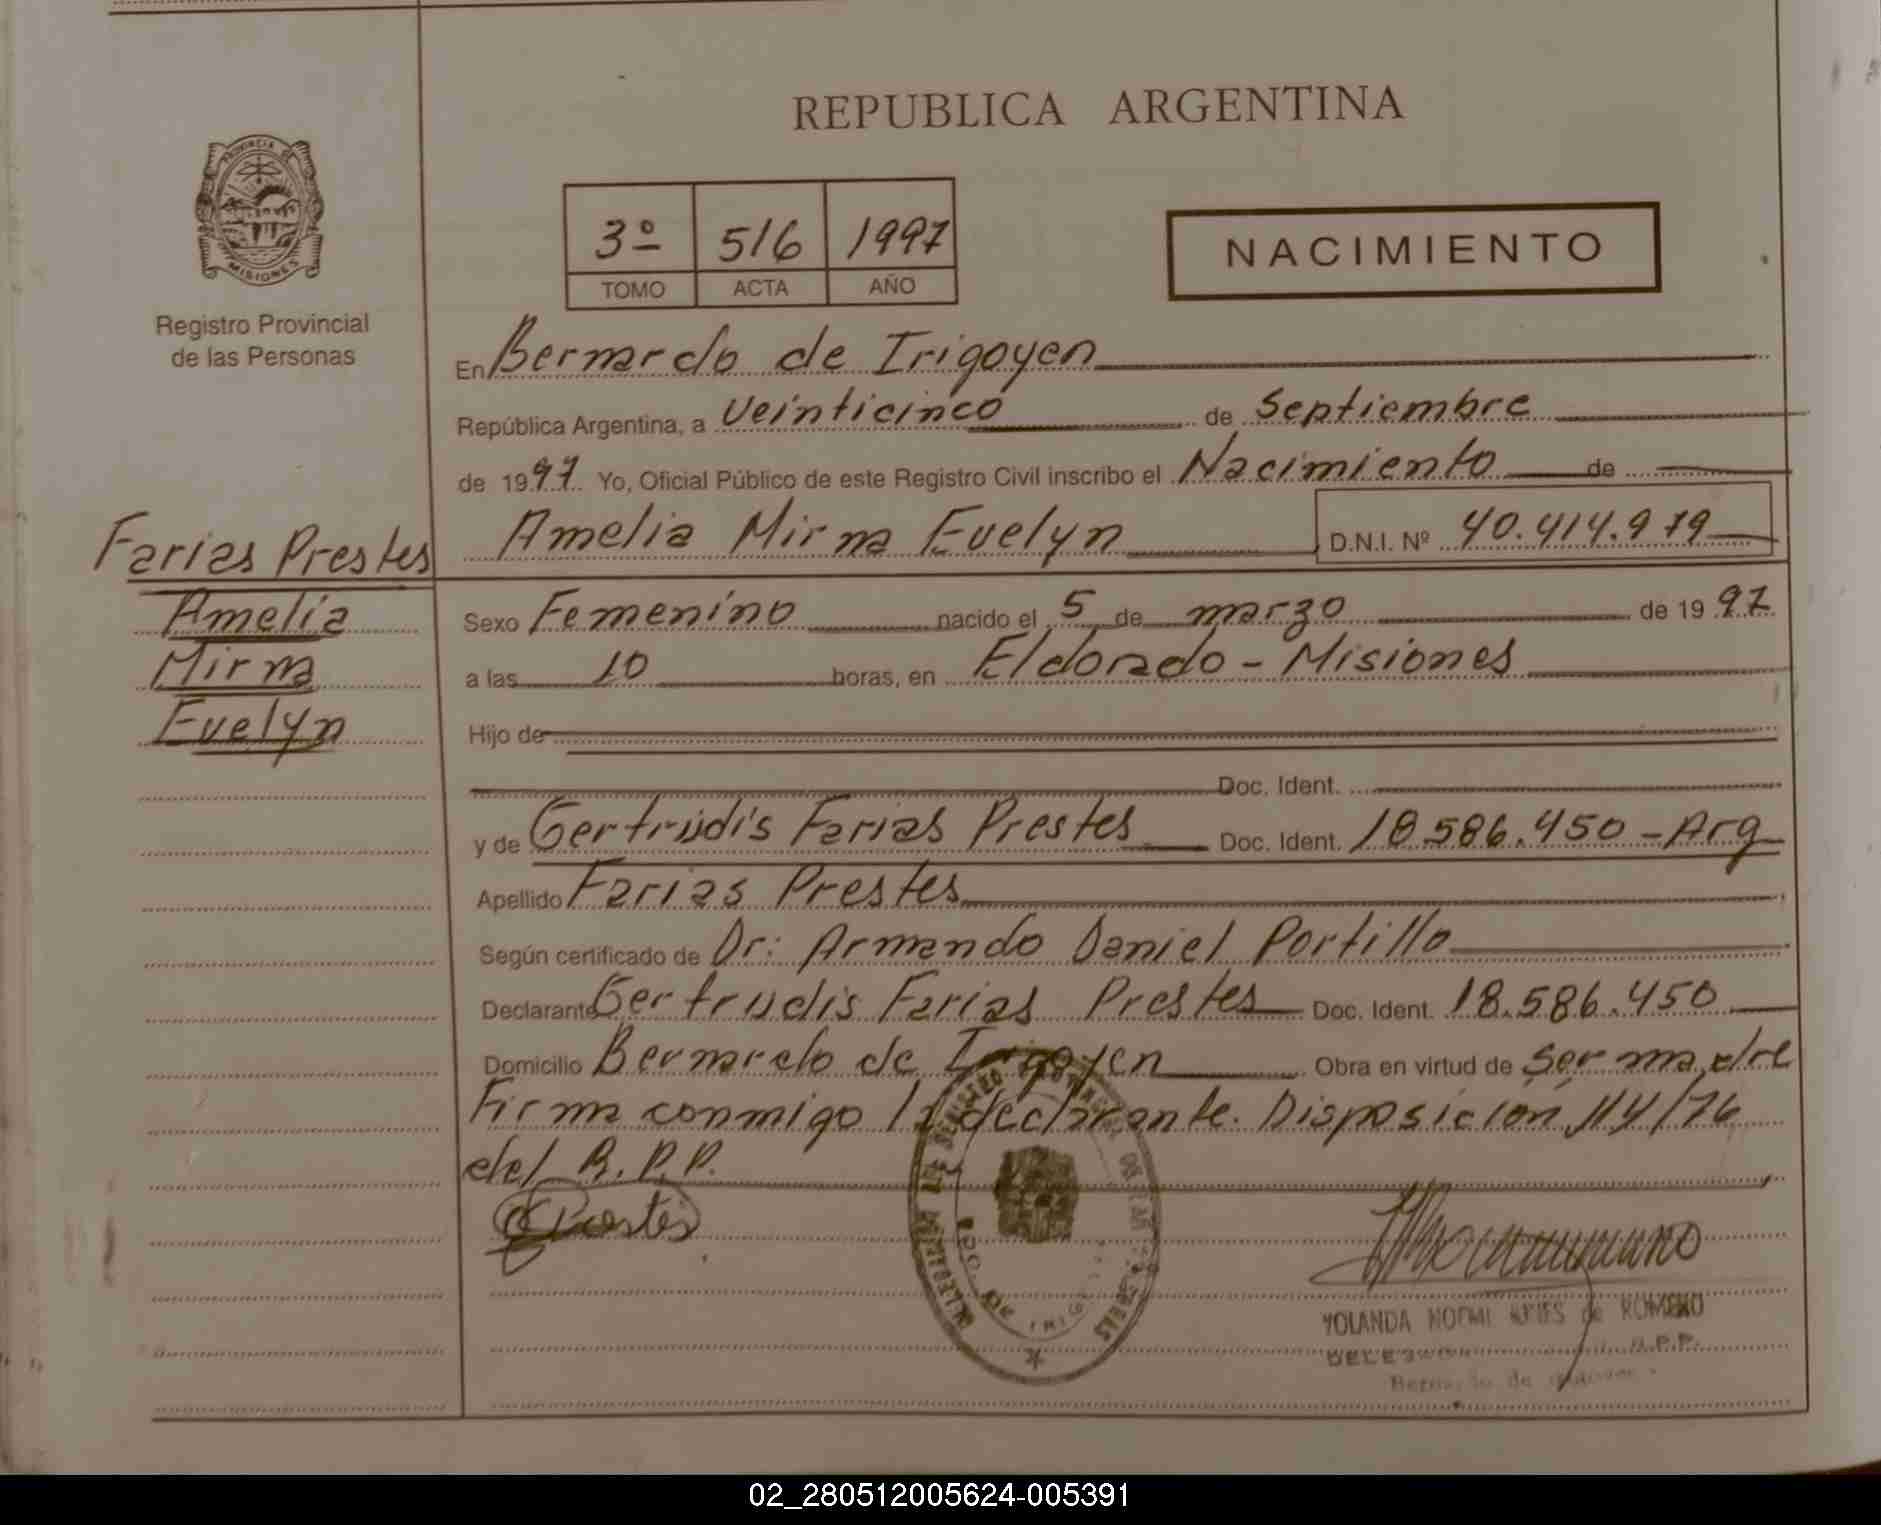 REPUBLICA ARGENTINA
PROVINCIA DE
MISIONES
Registro Provincial
de las Personas
3º 516 1997
TOMO ACTA AÑO
NACIMIENTO
En Bernardo de Irigoyen
República Argentina, a Veinticinco de Septiembre
de 1997 Yo, Oficial Público de este Registro Civil inscribo el Nacimiento de
Amelia Mirna Evelyn D.N.I. Nº 40.414.979
Farias Prestes
Amelia
Mirna
Evelyn
Sexo Femenino nacido el 5 de marzo de 1997
a las 10 horas, en Eldorado - Misiones
Hijo de
Doc. Ident.
y de Gertrudis Farias Prestes Doc. Ident. 18.586.450 - Arg
Apellido Farias Prestes
Según certificado de Dr: Armando Daniel Portillo
Declarante Gertrudis Farias Prestes Doc. Ident. 18.586.450
Domicilio Bernardo de Irigoyen Obra en virtud de Ser madre
Firma conmigo la declarante. Disposición 114/76
del R.P.P.
YOLANDA NOEMI de ROMERO
R.P.P.
Bernardo de Irigoyen
02_280512005624-005391